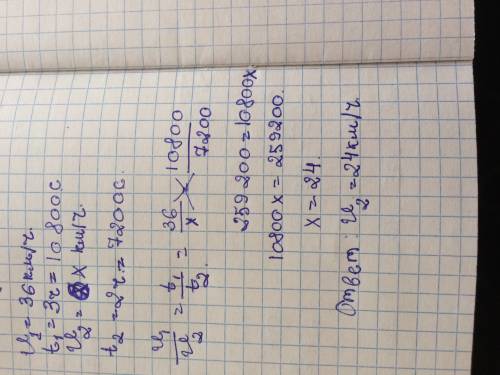 υ₁ = 36 км/ч.
t₁ = 3ч = 10800с
υ₂ = x км/ч.
t₂ = 2ч. = 7200с.
υ₁/υ₂ = t₁/t₂. = 36/x 10800/7200
259 200 = 10800x
10800x = 259200.
x = 24.
Ответ: υ₂ = 24км/ч.